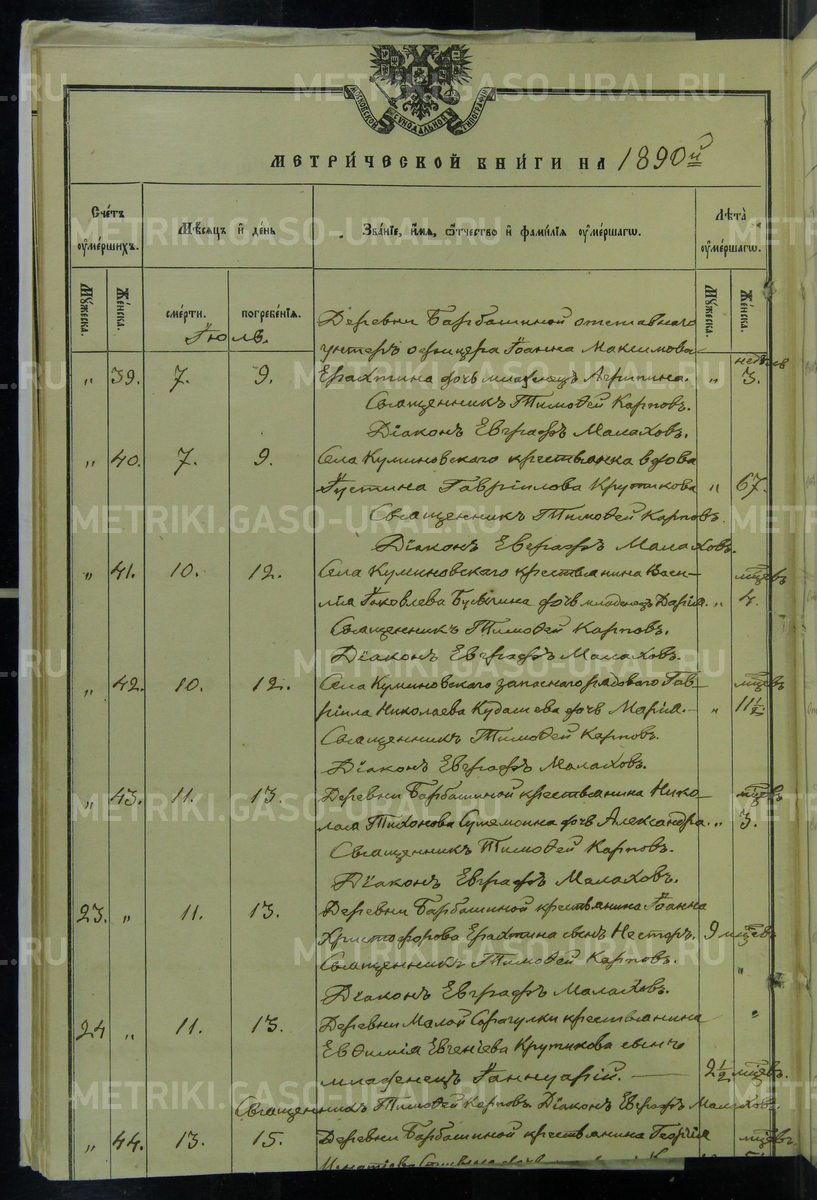 МОСКОВСКОЙ СУНОДАЛЬНОЙ ТИПОГРАФІИ
МЕТРИ́ЧЕСКОЙ КНИ́ГИ НА 1890й
Сче́тъ ᲂу҆ме́ршихъ.
Мѣ́сяцъ и҆ де́нь
Зва́нїе, и҆́мя, ѻ҆́тчество и҆ фами́лїя ᲂу҆ме́ршагѡ.
Лѣ́та ᲂу҆ме́ршагѡ.
Мꙋ́жеска.
Же́нска.
сме́рти.
погребе́нїѧ.
Мꙋ́жеска.
Же́нска.
Іюль.
Деревни Барбашиной отставнаго
унтеръ офицера Іоанна Максимова
„ 39. 7. 9. Ерахтина дочь младенецъ Агрипина. „ недѣль 3.
Священникъ Тимоѳей Карповъ.
Діаконъ Евграфъ Малаховъ.
„ 40. 7. 9. Села Куминовскаго крестьянка вдова
Іустина Гавріилова Крутикова „ 67.
Священникъ Тимоѳей Карповъ.
Діаконъ Евграфъ Малаховъ.
„ 41. 10. 12. Села Куминовскаго крестьянина Васи– мцевъ
лія Іаковлева дочь младенецъ Дарія. „ 4.
Священникъ Тимоѳей Карповъ.
Діаконъ Евграфъ Малаховъ.
„ 42. 10. 12. Села Куминовскаго запаснаго рядоваго Гав– мцевъ
ріила Николаева Кудашева дочь Марія. – „ 11½
Священникъ Тимоѳей Карповъ.
Діаконъ Евграфъ Малаховъ.
„ 43. 11. 13. Деревни Барбашиной крестьянина Нико– мцевъ
лая Тихонова дочь Александра. „ 3.
Священникъ Тимоѳей Карповъ.
Діаконъ Евграфъ Малаховъ.
23. „ 11. 13. Деревни Барбашиной крестьянина Іоанна
Христофорова Ерахтина сынъ Несторъ. 9 мцевъ
Священникъ Тимоѳей Карповъ. „
Діаконъ Евграфъ Малаховъ.
24 „ 11. 13. Деревни Малой крестьянина „
Евѳимія Евгеніева Крутикова сынъ
младенецъ Іаннуарій. — 2½ мцевъ.
Священникъ Тимоѳей Карповъ Діаконъ Евграфъ Малаховъ.
„ 44. 13. 15. Деревни Барбашиной крестьянина Георгія мцевъ
METRIKI.GASO-URAL.RU